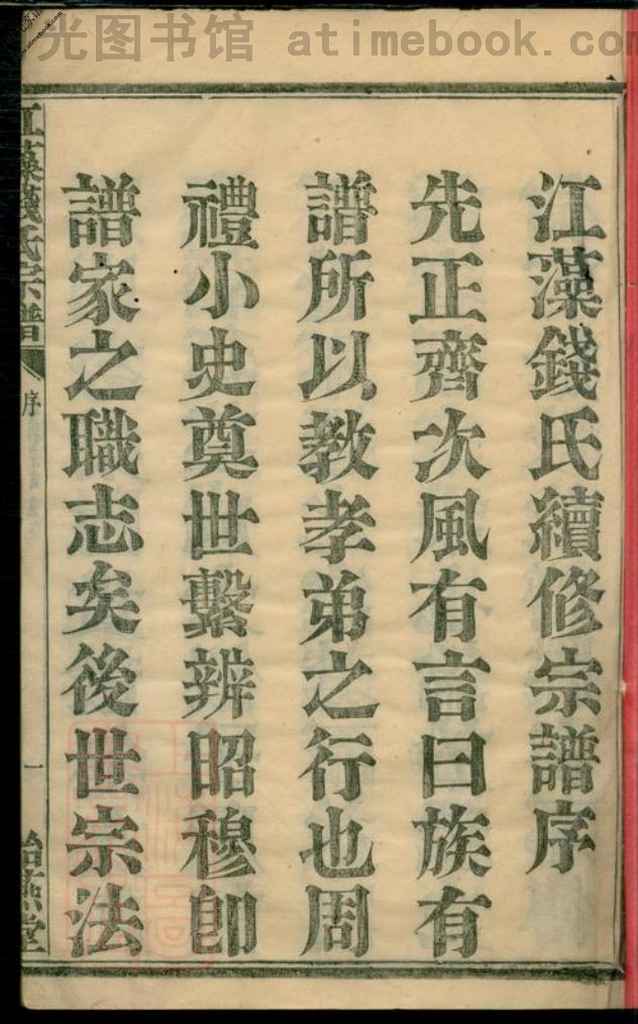 光图书馆 atimebook.com
江藻錢氏續修宗譜序
先正齊次風有言曰族有
譜所以教孝弟之行也周
禮小史奠世繫辨昭穆卽
譜家之職志矣後世宗法
江藻錢氏宗譜
序
一
怡燕堂